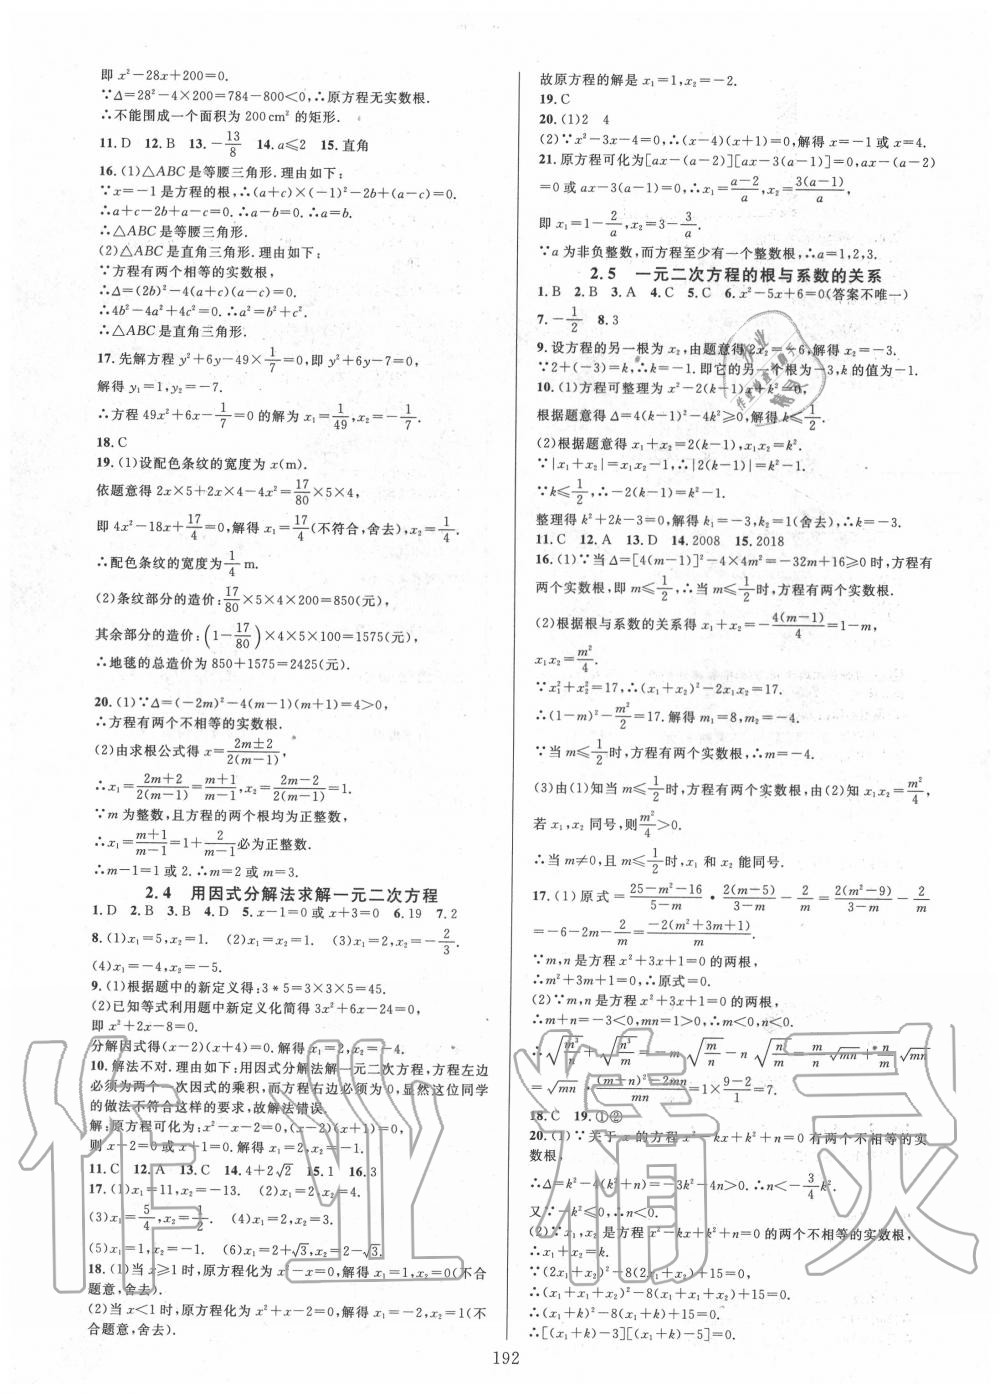 即 x²-28x+200=0.
∵Δ=28²-4×200=784-800<0,∴原方程无实数根.
∴不能围成一个面积为 200 cm² 的矩形.
11. D 12. B 13. -13/8 14. a≤2 15. 直角
16. (1)△ABC 是等腰三角形. 理由如下:
∵x=-1 是方程的根,∴(a+c)×(-1)²-2b+(a-c)=0.
∴a+c-2b+a-c=0. ∴a-b=0. ∴a=b.
∴△ABC 是等腰三角形.
(2)△ABC 是直角三角形. 理由如下:
∵方程有两个相等的实数根,
∴(2b)²-4(a+c)(a-c)=0.
∴4b²-4a²+4c²=0. ∴a²=b²+c².
∴△ABC 是直角三角形.
17. 先解方程 y²+6y-49×1/7=0,即 y²+6y-7=0,
解得 y₁=1,y₂=-7.
∴方程 49x²+6x-1/7=0 的解为 x₁=1/49,x₂=-1/7.
18. C
19. (1)设配色条纹的宽度为 x(m).
依题意得 2x×5+2x×4-4x²=17/80×5×4,
即 4x²-18x+17/4=0,解得 x₁=17/4(不符合,舍去),x₂=1/4.
∴配色条纹的宽度为 1/4 m.
(2)条纹部分的造价:17/80×5×4×200=850(元),
其余部分的造价:(1-17/80)×4×5×100=1575(元),
∴地毯的总造价为 850+1575=2425(元).
20. (1)∵Δ=(-2m)²-4(m-1)(m+1)=4>0,
∴方程有两个不相等的实数根.
(2)由求根公式得 x=(2m±2)/(2(m-1)),
∴x₁=(2m+2)/(2(m-1))=(m+1)/(m-1),x₂=(2m-2)/(2(m-1))=1.
∵m 为正整数,且方程的两个根均为正整数,
∴x₁=(m+1)/(m-1)=1+2/(m-1)必为正整数.
∴m-1=1 或 2. ∴m=2 或 m=3.
2.4 用因式分解法求解一元二次方程
1. D 2. B 3. B 4. D 5. x-1=0 或 x+3=0 6. 19 7. 2
8. (1)x₁=5,x₂=1. (2)x₁=x₂=1. (3)x₁=2,x₂=-2/3.
(4)x₁=-4,x₂=-5.
9. (1)根据题中的新定义得:3*5=3×3×5=45.
(2)已知等式利用题中新定义化简得 3x²+6x-24=0,
即 x²+2x-8=0.
分解因式得(x-2)(x+4)=0. 解得 x₁=2,x₂=-4.
10. 解法不对. 理由如下:用因式分解法解一元二次方程,方程左边
必须为两个一次因式的乘积,而方程右边必须为 0,显然这位同学
的做法不符合这样的要求,故解法错误.
解:原方程可化为:x²-x-2=0,(x-2)(x+1)=0.
则 x-2=0 或 x+1=0. 解得 x₁=2,x₂=-1.
11. C 12. A 13. C 14. 4+2√2 15. 1 16. 3
17. (1)x₁=11,x₂=-13. (2)x₁=2,x₂=4.
(3)x₁=5/4,x₂=1/2. (4)x₁=2,x₂=3.
(5)x₁=x₂=1. (6)x₁=2+√3,x₂=2-√3.
18. (1)当 x≥1 时,原方程化为 x²-x=0,解得 x₁=1,x₂=0(不合
题意,舍去).
(2)当 x<1 时,原方程化为 x²+x-2=0,解得 x₁=-2,x₂=1(不
合题意,舍去).
故原方程的解是 x₁=1,x₂=-2.
19. C
20. (1)2 4
(2)∵x²-3x-4=0,∴(x-4)(x+1)=0,解得 x=-1 或 x=4.
21. 原方程可化为[ax-(a-2)][ax-3(a-1)]=0,ax-(a-2)
=0 或 ax-3(a-1)=0,∴x₁=(a-2)/a,x₂=3(a-1)/a,
即 x₁=1-2/a,x₂=3-3/a.
∵a 为非负整数,而方程至少有一个整数根,∴a=1,2,3.
2.5 一元二次方程的根与系数的关系
1. B 2. B 3. A 4. C 5. C 6. x²-5x+6=0(答案不唯一)
7. -1/2 8. 3
9. 设方程的另一根为 x₂,由题意得 2x₂=-6,解得 x₂=-3.
∵2+(-3)=k,∴k=-1. 即它的另一个根为-3,k 的值为-1.
10. (1)方程可整理为 x²-2(k-1)x+k²=0,
根据题意得 Δ=4(k-1)²-4k²≥0,解得 k≤1/2.
(2)根据题意得 x₁+x₂=2(k-1),x₁x₂=k².
∵|x₁+x₂|=x₁x₂-1,∴|2(k-1)|=k²-1.
∵k≤1/2,∴-2(k-1)=k²-1.
整理得 k²+2k-3=0,解得 k₁=-3,k₂=1(舍去),∴k=-3.
11. C 12. A 13. D 14. 2008 15. 2018
16. (1)∵当 Δ=[4(m-1)]²-4×4m²=-32m+16≥0 时,方程有
两个实数根,即 m≤1/2,∴当 m≤1/2时,方程有两个实数根.
(2)根据根与系数的关系得 x₁+x₂=-4(m-1)/4=1-m,
x₁x₂=m²/4.
∵x₁²+x₂²=17,∴(x₁+x₂)²-2x₁x₂=17.
∴(1-m)²-m²/2=17. 解得 m₁=8,m₂=-4.
∵当 m≤1/2时,方程有两个实数根,∴m=-4.
(3)由(1)知当 m≤1/2时,方程有两个实数根,由(2)知 x₁x₂=m²/4,
若 x₁,x₂ 同号,则m²/4>0.
∴当 m≠0,且 m≤1/2时,x₁ 和 x₂ 能同号.
17. (1)原式=(25-m²-16)/(5-m)·2(m-5)/(3-m)-2/m=2(m²-9)/(3-m)-2/m
=-6-2m-2/m=-2(m²+3m+1)/m.
∵m,n 是方程 x²+3x+1=0 的两根,
∴m²+3m+1=0,∴原式=0.
(2)∵m,n 是方程 x²+3x+1=0 的两根,
∴m+n=-3<0,mn=1>0,∴m<0,n<0.
∴√(m³/n)+√(n³/m)=-m√(m/n)-n√(n/m)=-m/n√mn+n/m√mn
=√mn·((m+n)²-2mn)/mn=1×(9-2)/1=7.
18. C 19. ①②
20. (1)∵关于 x 的方程 x²-kx+k²+n=0 有两个不相等的实
数根,
∴Δ=k²-4(k²+n)=-3k²-4n>0. ∴n<-3/4k².
又∵-k²≤0,∴n≤0.
(2)∵x₁,x₂ 是方程 x²-kx+k²+n=0 的两个不相等的实数根,
∴x₁+x₂=k.
∵(2x₁+x₂)²-8(2x₁+x₂)+15=0,
∴(x₁+x₁+x₂)²-8(x₁+x₁+x₂)+15=0,
∴(x₁+k)²-8(x₁+k)+15=0.
∴[(x₁+k)-3][(x₁+k)-5]=0.
192
作业精灵